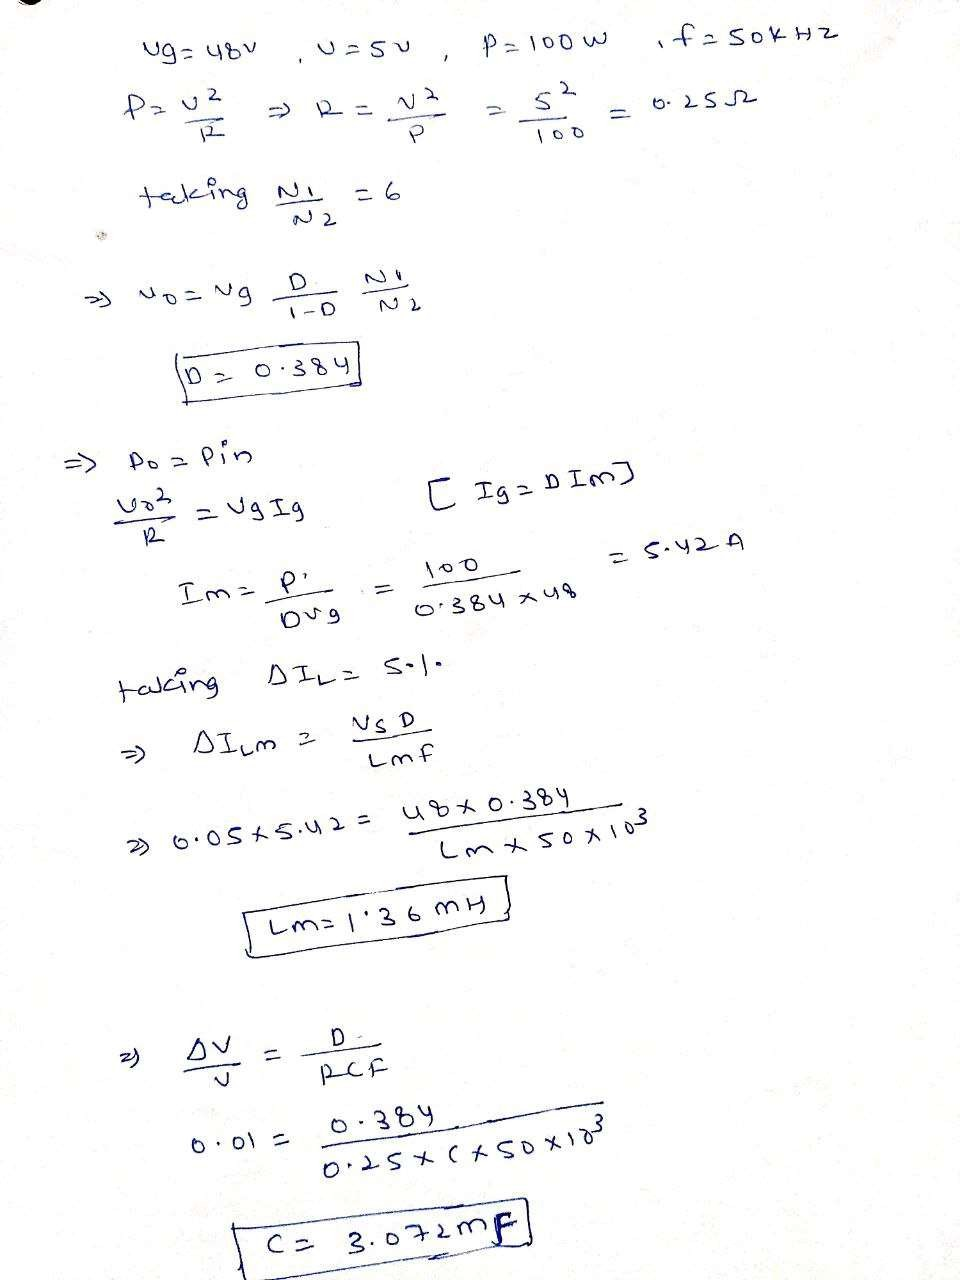 Vg = 48V , V = 5V , P = 100W , f = 50KHZ
P = V²/R ⇒ R = V²/P = 5²/100 = 0.25Ω
taking N1/N2 = 6
⇒ Vo = Vg D/(1-D) N1/N2
D = 0.384
⇒ Po = Pin
Vo²/R = Vg Ig [ Ig = D Im ]
Im = P/DVg = 100/(0.384 x 48) = 5.42 A
taking ΔIL = 5%
⇒ ΔILm = VsD/Lmf
⇒ 0.05 x 5.42 = (48 x 0.384)/(Lm x 50 x 10³)
Lm = 1.36 mH
⇒ ΔV/V = D/RCF
0.01 = 0.384/(0.25 x C x 50 x 10³)
C = 3.072mF